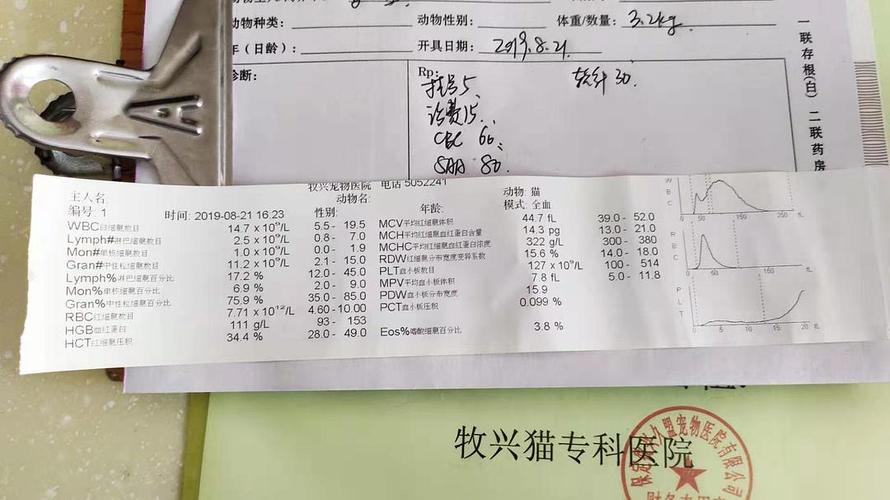 动物种类: 动物性别: 体重/数量: 3.2kg
年(日龄): 开具日期: 2019.8.21
诊断: Rp:
挂号5 软针30
诊费15
CBC 60
SAA 80
一联存根(白) 二联药房
牧兴宠物医院 电话 5052241
主人名: 动物名: 动物: 猫
编号: 1 时间: 2019-08-21 16.23 性别: 年龄: 模式: 全血
WBC白细胞数目 14.7 x 10⁹/L 5.5 - 19.5 MCV平均红细胞体积 44.7 fL 39.0 - 52.0
Lymph#淋巴细胞数目 2.5 x 10⁹/L 0.8 - 7.0 MCH平均红细胞血红蛋白含量 14.3 pg 13.0 - 21.0
Mon#单核细胞数目 1.0 x 10⁹/L 0.0 - 1.9 MCHC平均红细胞血红蛋白浓度 322 g/L 300 - 380
Gran#中性粒细胞数目 11.2 x 10⁹/L 2.1 - 15.0 RDW红细胞分布宽度变异系数 15.6 % 14.0 - 18.0
Lymph%淋巴细胞百分比 17.2 % 12.0 - 45.0 PLT血小板数目 127 x 10⁹/L 100 - 514
Mon%单核细胞百分比 6.9 % 2.0 - 9.0 MPV平均血小板体积 7.8 fL 5.0 - 11.8
Gran%中性粒细胞百分比 75.9 % 35.0 - 85.0 PDW血小板分布宽度 15.9
RBC红细胞数目 7.71 x 10¹²/L 4.60 - 10.00 PCT血小板压积 0.099 %
HGB血红蛋白 111 g/L 93 - 153
HCT红细胞压积 34.4 % 28.0 - 49.0 Eos%嗜酸细胞百分比 3.8 %
WBC
0 150 300 fL
RBC
0 100 200 fL
PLT
0 5 10 15 20 fL
牧兴猫专科医院
盟宠物医院有限公司
财务专用章